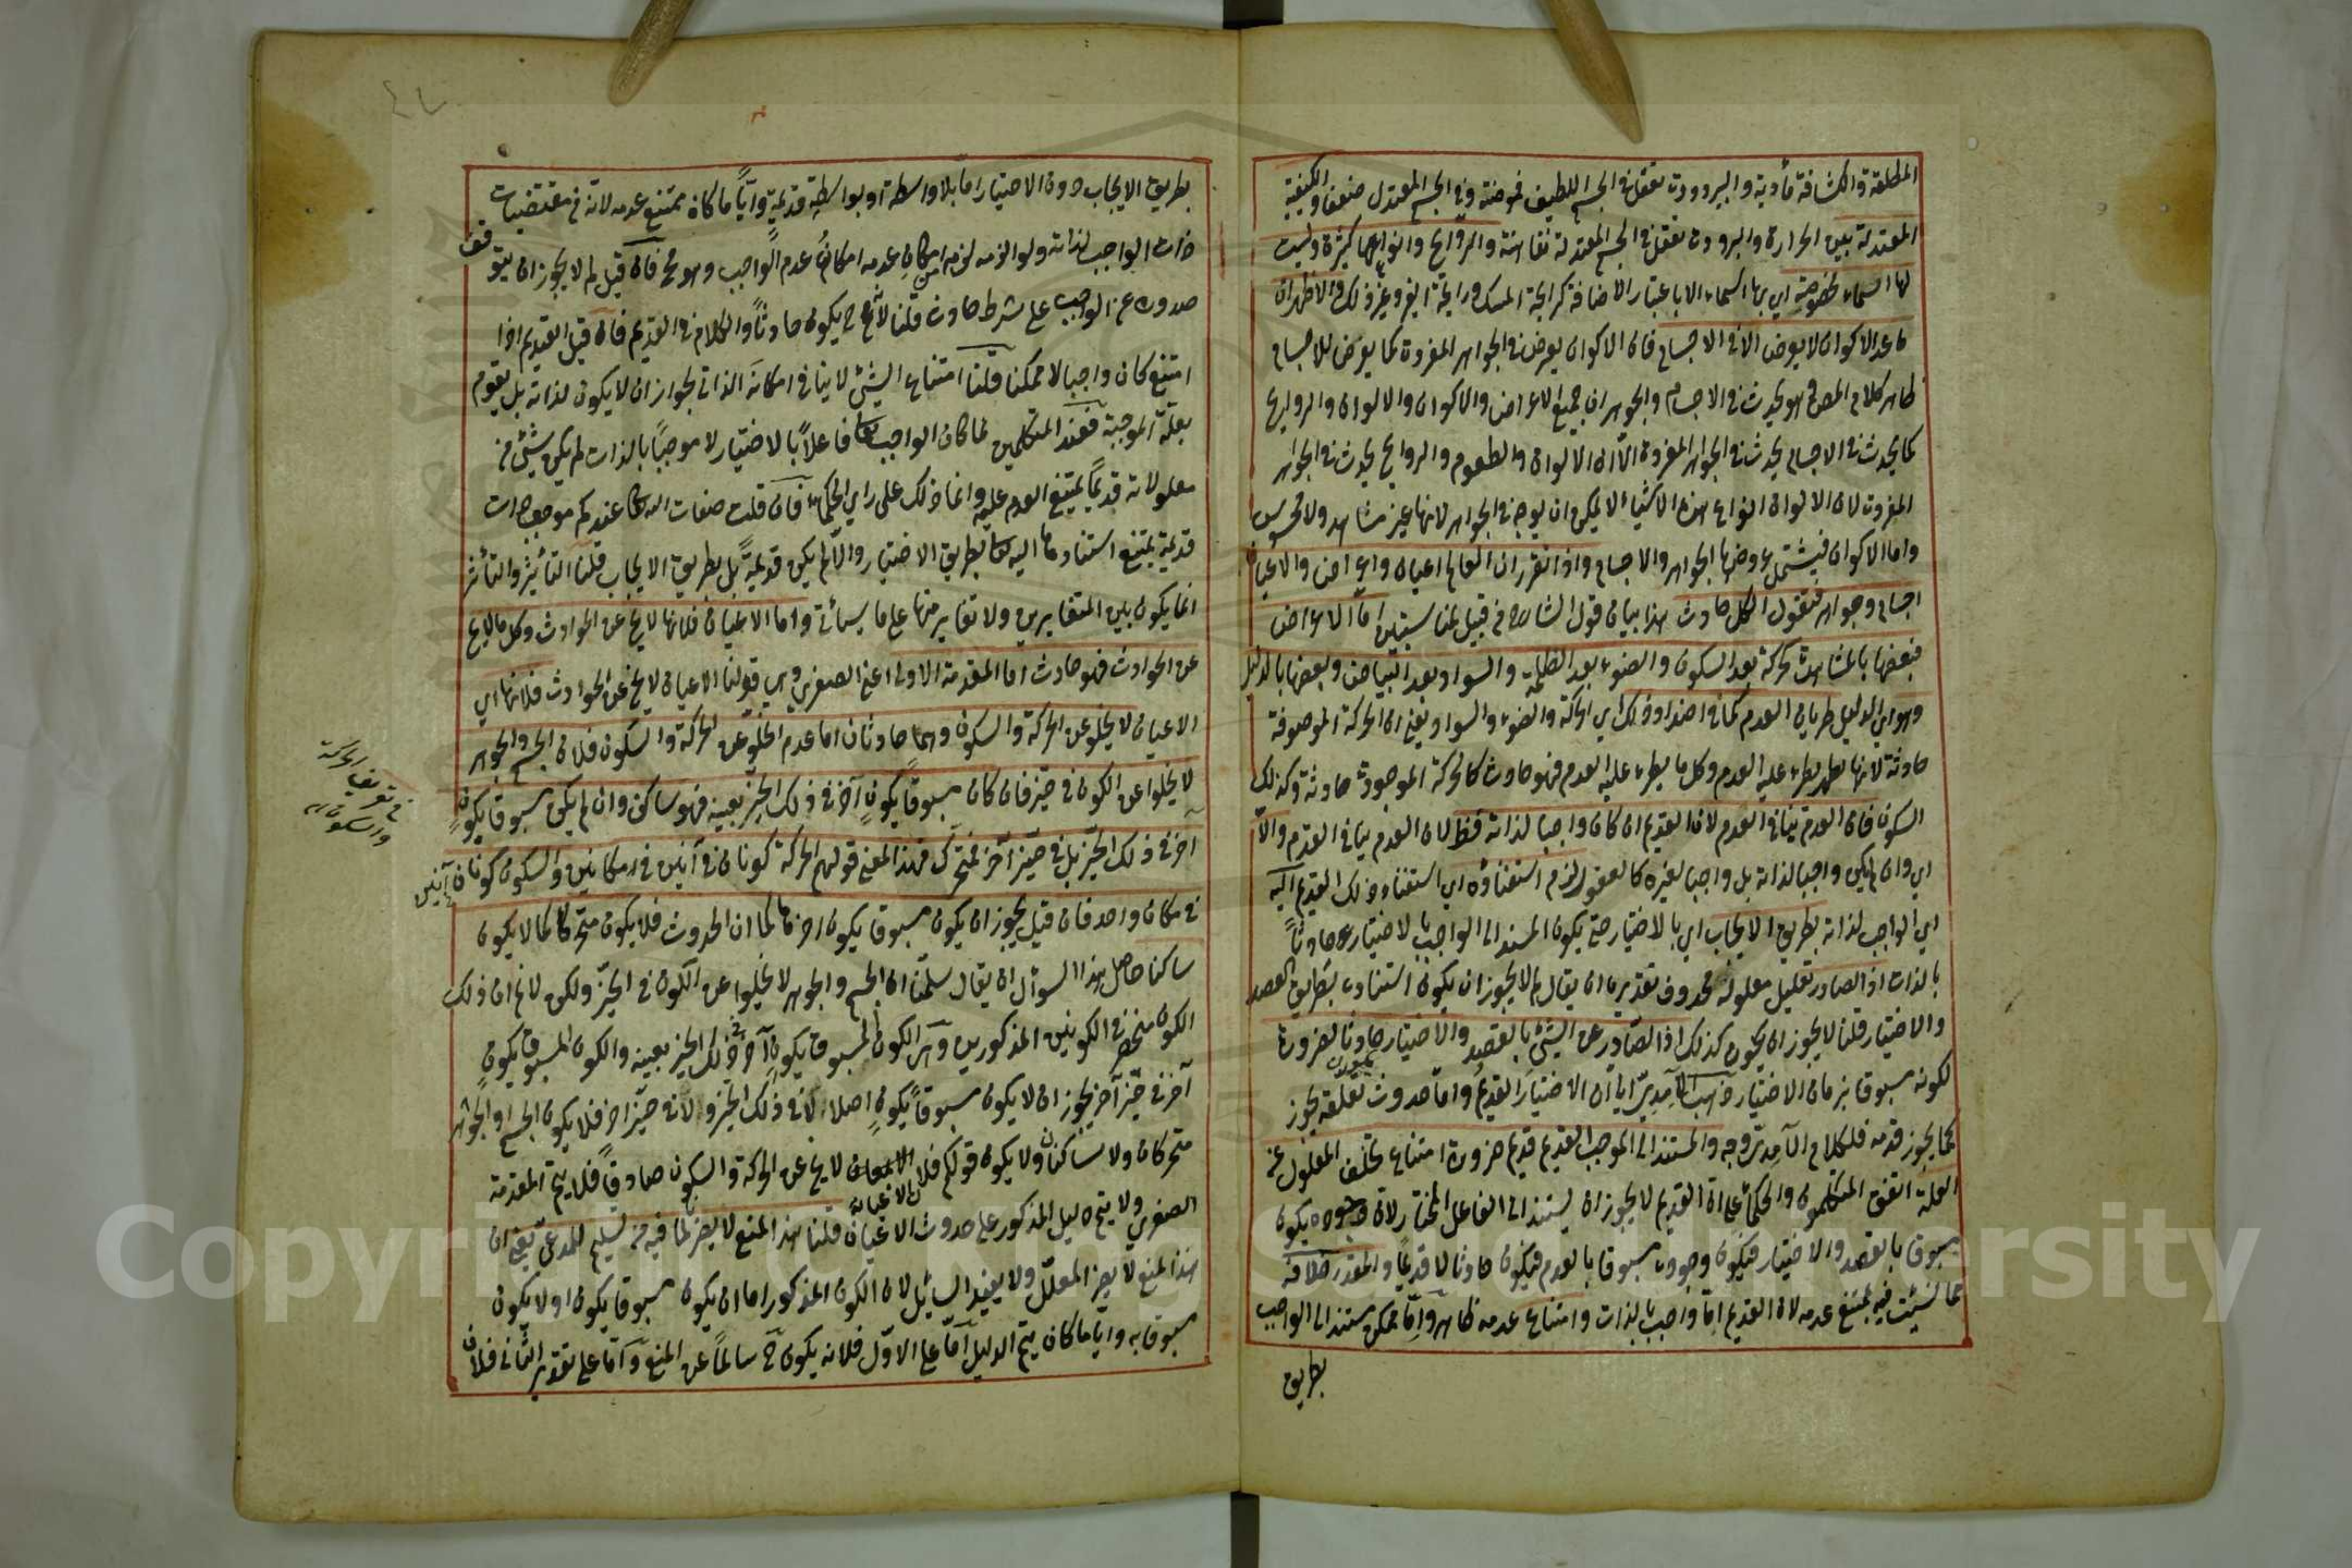 المطلقة والكثافة مأدية والبرودة تفعل في الجسم اللطيف حموضة وفي الجسم المعتدل عفوصا والكيفية
المعتدلة بين الحرارة والبرودة تفعل في الجسم المعتدلة تفاهة والروايح وانواعها كثيرة وليست
لها اسماء مخصوصة اي بها اسماء الا باعتبار الاضافة كرايحة المسك ورايحة وغير ذلك والاظهر ان
ما عدا الاكوان لا يعرض الا في الاجسام فان الاكوان يعرض في الجواهر المفردة كما يعرض للاجسام
ظاهر كلام المص هو يحدث في الاجسام والجواهر ان جميع الاعراض والاكوان والالوان والروايح
كما يحدث في الاجسام يحدث في الجواهر المفردة الا ان الالوان والطعوم والروايح يحدث في الجواهر
المفردة لان الالوان انواع هذه الاشياء لا يمكن ان يوجد في الجواهر لانها غير مشاهد ولا محسوس
واما الاكوان فيشتمل عروضها الجواهر والاجسام واذا تقرر ان العالم اعيان واعراض والاعيان
اجسام وجواهر فنقول الكل حادث هذا بيان قول الشارح من قبيل لما سنبين اما الاعراض
فبعضها بالمشاهدة كالحركة بعد السكون والضوء بعد الظلمة والسواد بعد البياض وبعضها بالدليل
وهو اي الدليل طريان العدم كما في اضداد ذلك اي الحركة والضوء والسواد يعني ان الحركة الموصوفة
حادثة لانها يطرء عليه العدم وكل ما يطرء عليه العدم فهو حادث كالحركة الموجودة حادثة وكذلك
السكون فان العدم ينافي القدم لان القديم ان كان واجبا لذاته فظ لان العدم ينافي القدم والا
اي وان لم يكن واجبا لذاته بل واجبا لغيره كالعقول لزم استناده اي استناد ذلك القديم اليه
اي الواجب لذاته بطريق الايجاب اي بالاختيار حتى يكون المسند الى الواجب بالاختيار حادثا
بالذات اذ الصادر تعليل معلوله محذوف تقديره ان يقال لم لا يجوز ان يكون استناده بطريق القصد
والاختيار قلنا لا يجوز ان يكون كذلك اذ الصادر عن الشيئ بالقصد والاختيار حادثا لضرورة
لكونه مسبوقا بزمان الاختيار ذهب الآمدي الى ان الاختيار القديم واما حدوث تعلقه يجوز
كما يجوز قدمه فلكلام الآمدي وجه والمستند الى الموجب القديم قديم ضرورة امتناع تخلف المعلول عن
العلة اتفق المتكلمون والحكماء على ان القديم لا يجوز ان يستند الى الفاعل المختار لان وجوده يكون
مسبوقا بالقصد والاختيار فيكون وجوده مسبوقا بالعدم فيكون حادثا لا قديما والمقدر خلافه
فيه يمتنع عدمه لان القديم اما واجب بالذات وامتناع عدمه ظاهر واما ممكن مستند الى الواجب
بطريق
بطريق الايجاب دون الاختيار اما بلا واسطة او بواسطة قديمة وايا ما كان يمتنع عدمه لانه من مقتضيات
ذات الواجب لذاته ولوازمه لزم امكان عدمه امكان عدم الواجب وهو مح فان قيل لم لا يجوز ان يتوقف
صدوره عن الواجب على شرط حادث قلنا لانه ح يكون حادثا والكلام في القديم فان قيل القديم اذا
امتنع كان واجبا لا ممكنا قلنا امتناع الشيئ لا ينافي امكانه الذاتي لجواز ان لا يكون لذاته بل يقوم
بعلته الموجبة فعند المتكلمين لما كان الواجب تعا فاعلا بالاختيار لا موجبا بالذات لم يكن شيئ من
معلولاته قديما يمتنع العدم عليه وانما ذلك على راي الحكماء فان قلت صفات الله تعا عندكم موجودات
قديمة يمتنع استنادها اليه تعا بطريق الاختيار والا لم يكن قديمة بل بطريق الايجاب قلنا التأثير والتأثر
انما يكون بين المتغايرين ولا تغاير منها على ما سيأتي واما الاعيان فلانها لا يخ عن الحوادث وكل ما لا يخ
عن الحوادث فهو حادث اما المقدمة الاولى اعني الصغرى وهي قولنا الاعيان لا يخ عن الحوادث فلانها اي
الاعيان لا يخلو عن الحركة والسكون وهما حادثان اما عدم الخلو عن الحركة والسكون فلان الجسم والجوهر
لا يخلوا عن الكون في حيز فان كان مسبوقا بكون آخر في ذلك الحيز بعينه فهو ساكن وان لم يكن مسبوقا بكون
آخر في ذلك الحيز بل في حيز آخر فمتحرك فهذا المعنى قولهم الحركة كونان في آنين في مكانين والسكون كونان في آنين
في مكان واحد فان قيل يجوز ان يكون مسبوقا بكون اخر كما في ان الحدوث فلا يكون متحركا كما لا يكون
ساكنا حاصل هذا السؤال ان يقال سلمنا ان الجسم والجوهر لا يخلوا عن الكون في الحيز ولكن لا نم ان ذلك
الكون منحصر في الكونين المذكورين وهي الكون المسبوق بكون آخر في ذلك الحيز بعينه والكون المسبوق بكون
آخر في حيز آخر يجوز ان لا يكون مسبوقا بكون اصلا لا في ذلك الحيز ولا في حيز اخر فلا يكون الجسم او الجوهر
متحركان ولا ساكنان ولا يكون قولكم فلان الاعيان لا يخ عن الحركة والسكون صادقا فلا يتم المقدمة
الصغرى ولا يتم دليل المذكور على حدوث الاعيان قلنا هذا المنع لا يضر لما فيه من تسليم المدعى يعني ان
هذا المنع لا يضر المعلل ولا يفيد السائل لان الكون المذكور اما ان يكون مسبوقا بكون او لا يكون
مسبوقا به وايا ما كان يتم الدليل اما على الاول فلانه يكون ح سالما عن المنع واما على تقدير الثاني فلان
في تعريف الحركة
والسكون
Copyright © King Saud University